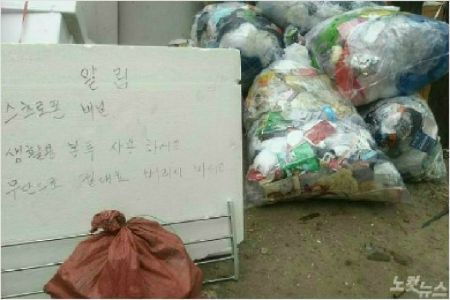 알림
스치로폼 비닐
생활용 봉투 사용하시고
무단으로 절대로 버리지 마시오
노컷뉴스